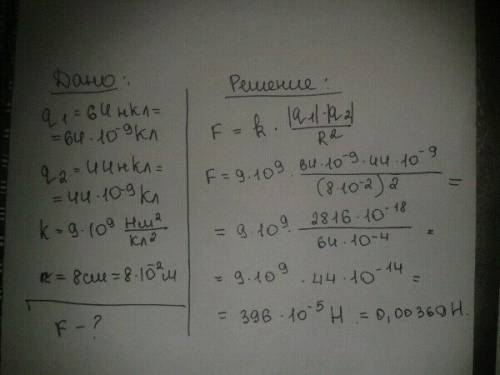 Дано:
q1 = 64нкл=
= 64·10⁻⁹Кл
q2 = 44нкл=
= 44·10⁻⁹Кл
k = 9·10⁹ Нм²/Кл²
R = 8см = 8·10⁻²м
F - ?
Решение:
F = k · |q1|·|q2| / R²
F = 9·10⁹ · 64·10⁻⁹·44·10⁻⁹ / (8·10⁻²)2 =
= 9·10⁹ · 2816·10⁻¹⁸ / 64·10⁻⁴ =
= 9·10⁹ · 44·10⁻¹⁴ =
= 396·10⁻⁵ Н = 0,00360Н.